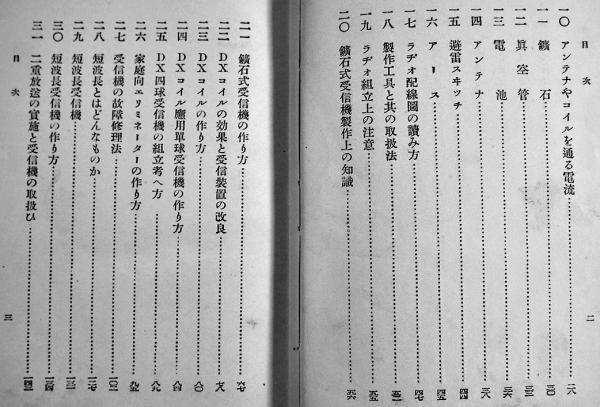 目次
一〇 アンテナやコイルを通る電流
一一 鑛石
一二 眞空管
一三 電池
一四 アンテナ
一五 避雷スヰッチ
一六 アース
一七 ラヂオ配線圖の讀み方
一八 製作工具と其の取扱法
一九 ラヂオ組立上の注意
二〇 鑛石式受信機製作上の知識
二
二一 鑛石式受信機の作り方
二二 DXコイルの効果と受信裝置の改良
二三 DXコイルの作り方
二四 DXコイル應用單球受信機の作り方
二五 DX四球受信機の組立考へ方
二六 家庭向エリミネーターの作り方
二七 受信機の故障修理法
二八 短波長とはどんなものか
二九 短波長受信機
三〇 短波長受信機の作り方
三一 二重放送の實施と受信機の取扱ひ
目次
三